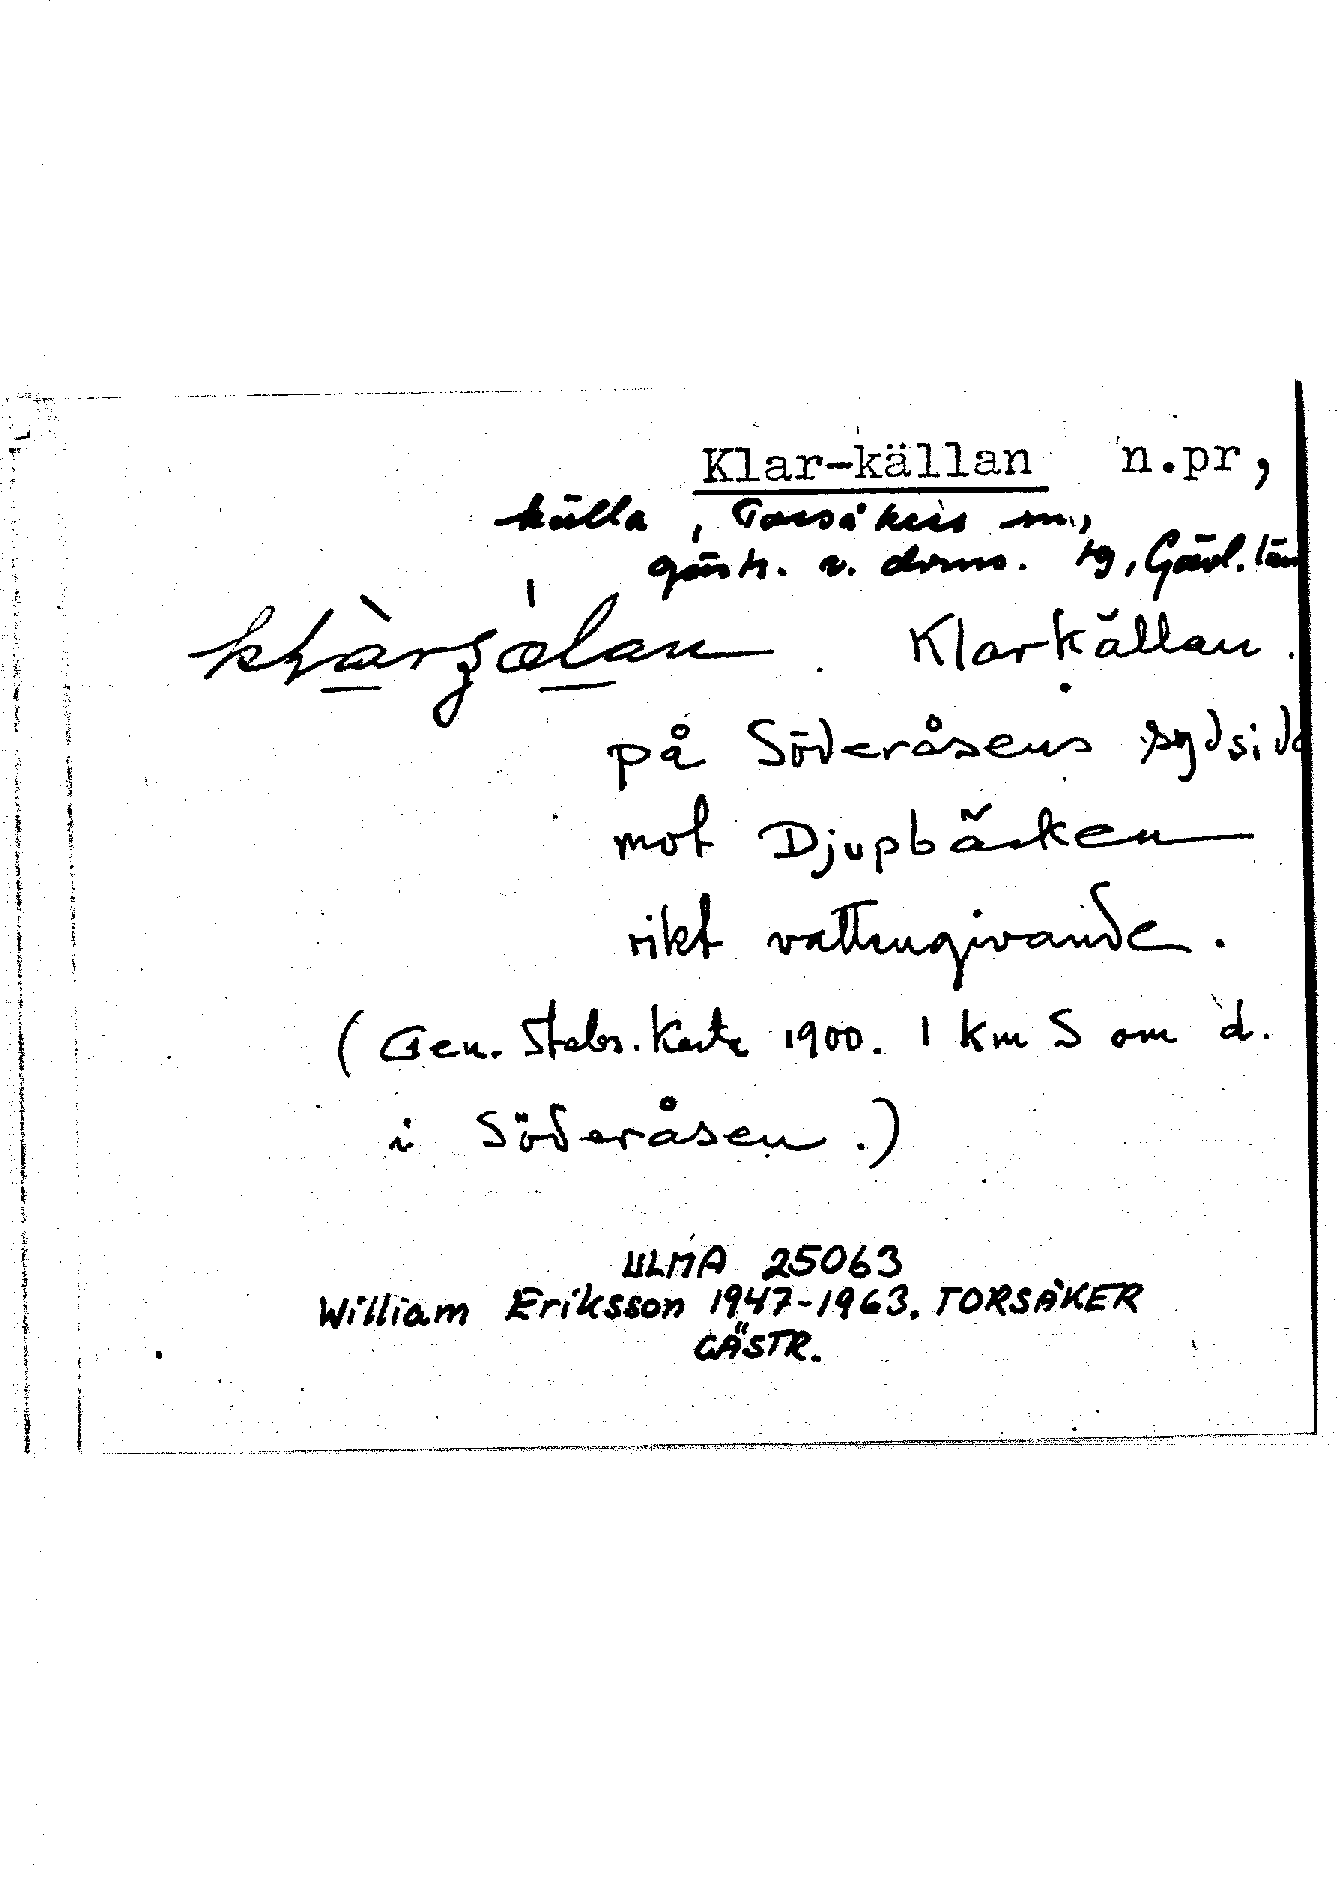 Klar-källan n.pr,
källa, Torsåkers sn,
Gästr. v. doms. tg, Gävl. län
Klarkällan.
på Söderåsens sydsida
mot Djupbäcken
rikt vattengivande.
(Gen. Stabs. Karta 1900. 1 km S om d.
i Söderåsen.)
ULMA 25063
William Eriksson 1947-1963. TORSÅKER
GÄSTR.